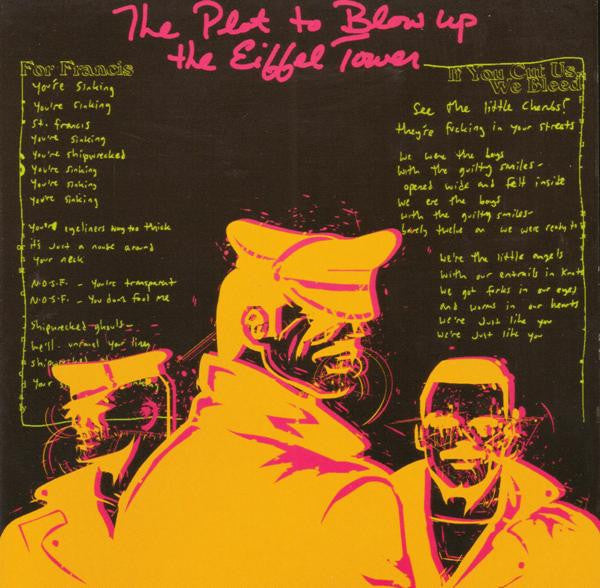 The Plot to Blow up
the Eiffel Tower
For Francis
You're Sinking
You're Sinking
St. francis
You're Sinking
You're shipwrecked
You're Sinking
You're Sinking
You're Sinking
eyeliners way too thick
it's Just a noose around
Your neck
N.O.S.F. - You're transparent
N.O.S.F. - You don't fool me
Shipwrecked ghouls-
he'll unravel your lines
Your
If You Cut Us,
We Bleed
See the little Cherubs!
they're fucking in your streets
We were the boys
with the guilty smiles-
opened wide and felt inside
we ere the boys
with the guilty smiles-
barely twelve an we were ready to
We're the little angels
With our entrails in knots
We got forks in our eyes
and worms in our hearts
We're Just like you
We're Just like you